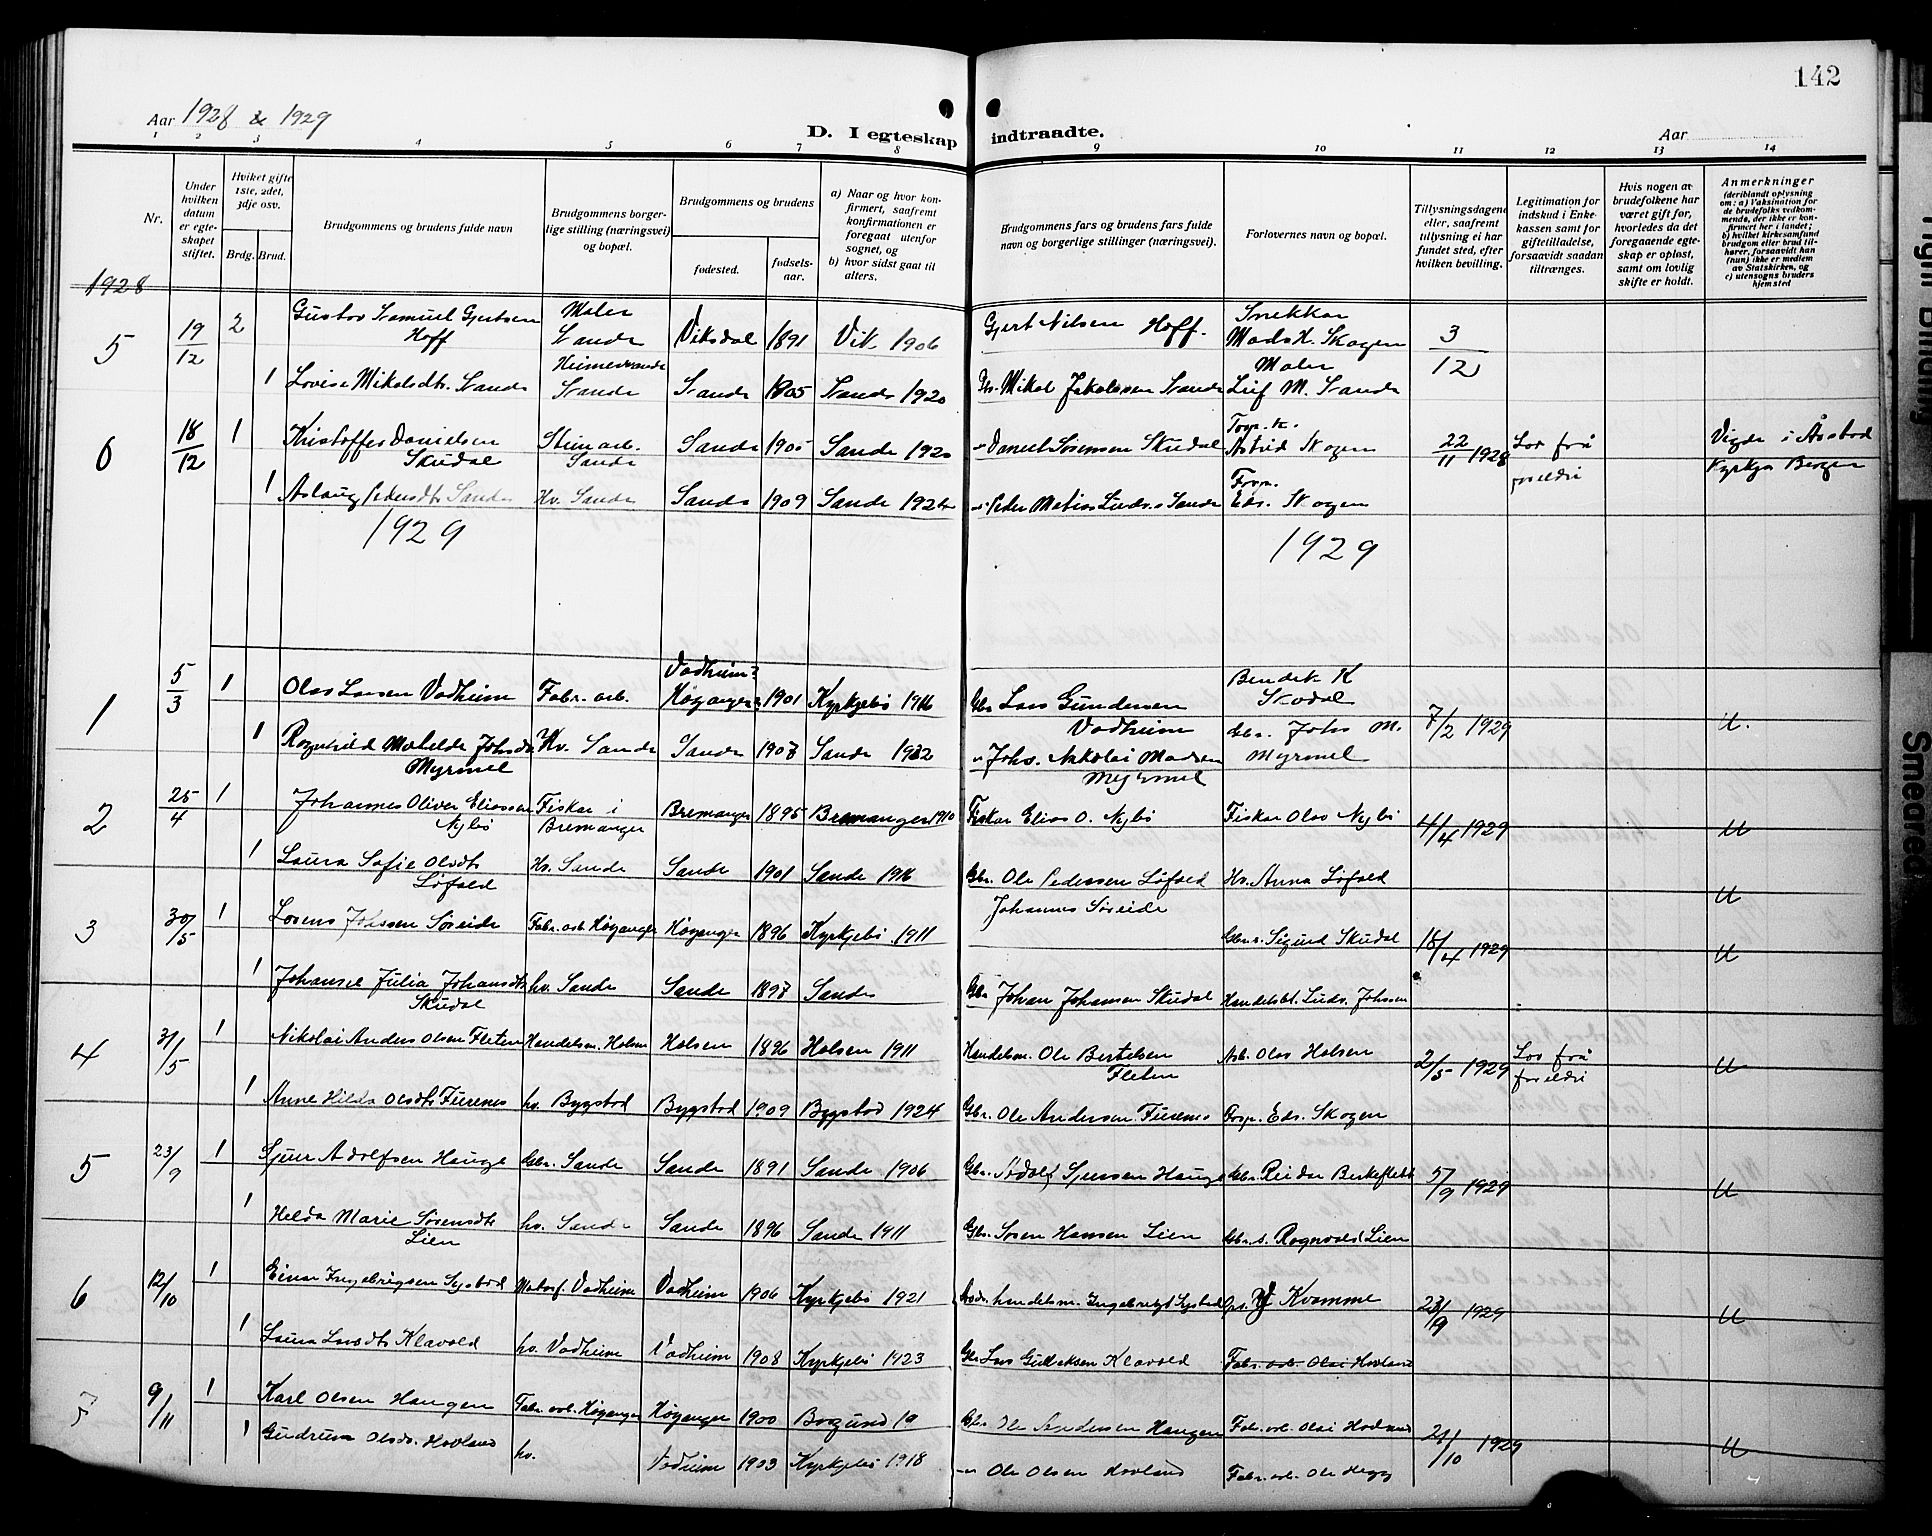 142
Aar 1928 & 1929
D. I egteskap indtraadte.
Aar
1 2 3 4 5 6 7 8 9 10 11 12 13 14
Nr.
Under hvilken datum er egteskapet stiftet.
Hviket gifte 1ste, 2det, 3dje osv.
Brdg. Brud.
Brudgommens og brudens fulde navn
Brudgommens borgerlige stilling (næringsvei) og bopæl.
Brudgommens og brudens
fødested. fødselsaar.
a) Naar og hvor konfirmert, saafremt konfirmationen er foregaat utenfor sognet, og
b) hvor sidst gaat til alters.
Brudgommens fars og brudens fars fulde navn og borgerlige stillinger (næringsvei).
Forlovernes navn og bopæl.
Tillysningsdagene eller, saafremt tillysning ei har fundet sted, efter hvilken bevilling.
Legitimation for indskud i Enkekassen samt for giftetilladelse, forsaavidt saadan tiltrænges.
Hvis nogen av brudefolkene har været gift før, hvorledes da det foregaaende egteskap er opløst, samt om lovlig skifte er holdt.
Anmerkninger
(deriblandt oplysning om: a) Vaksination for de brudefolks vedkommende, der ikke er konfirmert her i landet;
b) hvilket kirkesamfund brudgom eller brud tilhører, forsaavidt han (hun) ikke er medlem av Statskirken, og
c) utensogns bruders hjemsted
1928
5 19/12 2 Gustav Samuel Gjertsen Hoff Maler Sande Viksdal 1891 Vik 1906 Gjert Nilsen Hoff. Snekkar Mads K. Skogen 3/12
1 Lovise Mikalsdtr. Sande Heimeverande Sande Sande 1905 Sande 1920 Gbr. Mikal Jakobsen Sande Maler Leif M. Sande
6 18/12 1 Kristoffer Danielsen Skudal Steinarb. Sande Sande 1905 Sande 1920 " Daniel Sørensen Skudal Astrid Skogen 22/11 1928 Lov frå foreldri Vigde i Årstad Kyrkja Bergen
1 Aslaug Pedersdtr Sande Hv. Sande Sande 1909 Sande " Peder Matias Sande Eds. Skogen
1929 1929
1 5/3 1 Olav Larsen Vadheim Fabr. arb. Vadheim? Høyanger? 1901 Kyrkjebø 1916 Gbr Lars Gundersen Vadheim Bendik K Skodal 7/2 1929 U.
1 Ragnhild Mathilde Johsdtr Myrmel Hv. Sande Sande 1907 Sande " Johs. Nikolai Madsen Myrmel Gbr. Johs M. Myrmel
2 25/4 1 Johannes Oliver Eliassen Nybø Fiskar i Bremanger Bremanger 1895 Bremanger 1910 Fiskar Elias O. Nybø Fiskar Olav Nybø 4/4 1929 U
1 Laura Sofie Olsdtr Løfald Hv. Sande Sande 1901 Sande 1916 Gbr. Ole Pedersen Løfald Hv. Anna Løfald U
3 30/5 1 Lorens Johssen Søreide Fabr. arb Høyanger Høyanger 1896 Kyrkjebø 1911 Johannes Søreide Gbr. s. Sigurd Skudal 18/4 1929 U
1 Johanne Julia Johansdtr Skudal hv. Sande Sande 1897 Sande Gbr Johan Johansen Skudal Handelsbt. Ludv. Johssen
4 31/5 1 Nikolai Anders Olsen Fleten Handelsm. Holsen Holsen 1896 Holsen 1911 Handelsm. Ole Bertelsen Fleten Arb. Olav Holsen 2/5 1929 Lov frå foreldri U
1 Anne Hilda Olsdtr Furenes hv. Bygstad Bygstad 1909 Bygstad 1924 Gbr. Ole Andersen Furenes Eds. Skogen
5 23/9 1 Sjur Adolfsen Hauge Gbr. Sande Sande 1891 Sande 1906 Gbr. Adolf Sjursen Hauge Gbr. Reidar Birkeflet 5/9 1929 U
1 Hilda Marie Sørensdtr Lien hv. Sande Sande 1896 Sande 1911 Gbr. Søren Hansen Lien Gbr. s. Ragnvald Lien
6 12/10 1 Einar Ingebrigtsen Systad Motorf. Vadheim Vadheim 1906 Kyrkjebø 1921 handelsm. Ingebrigt Systad Kvamme 23/9 1929 U
1 Laura Larsdtr Klævold hv. Vadheim Vadheim 1908 Kyrkjebø 1923 Gbr Lars Gulleksen Klævold Fabr. arb. Olai Hovland
7 9/11 1 Karl Olsen Haugen Fabr. arb. Høyanger Høyanger 1900 Borgund 19 Gbr. Ole Andersen Haugen Fabr. arb. Olai Hovland 21/10 1929 U
1 Gudrun Olsdtr. Hovland hv. Vadheim 1903 Kyrkjebø 1918 " Ole Olsen Hovland Fabr. arb. Ole
Smeared